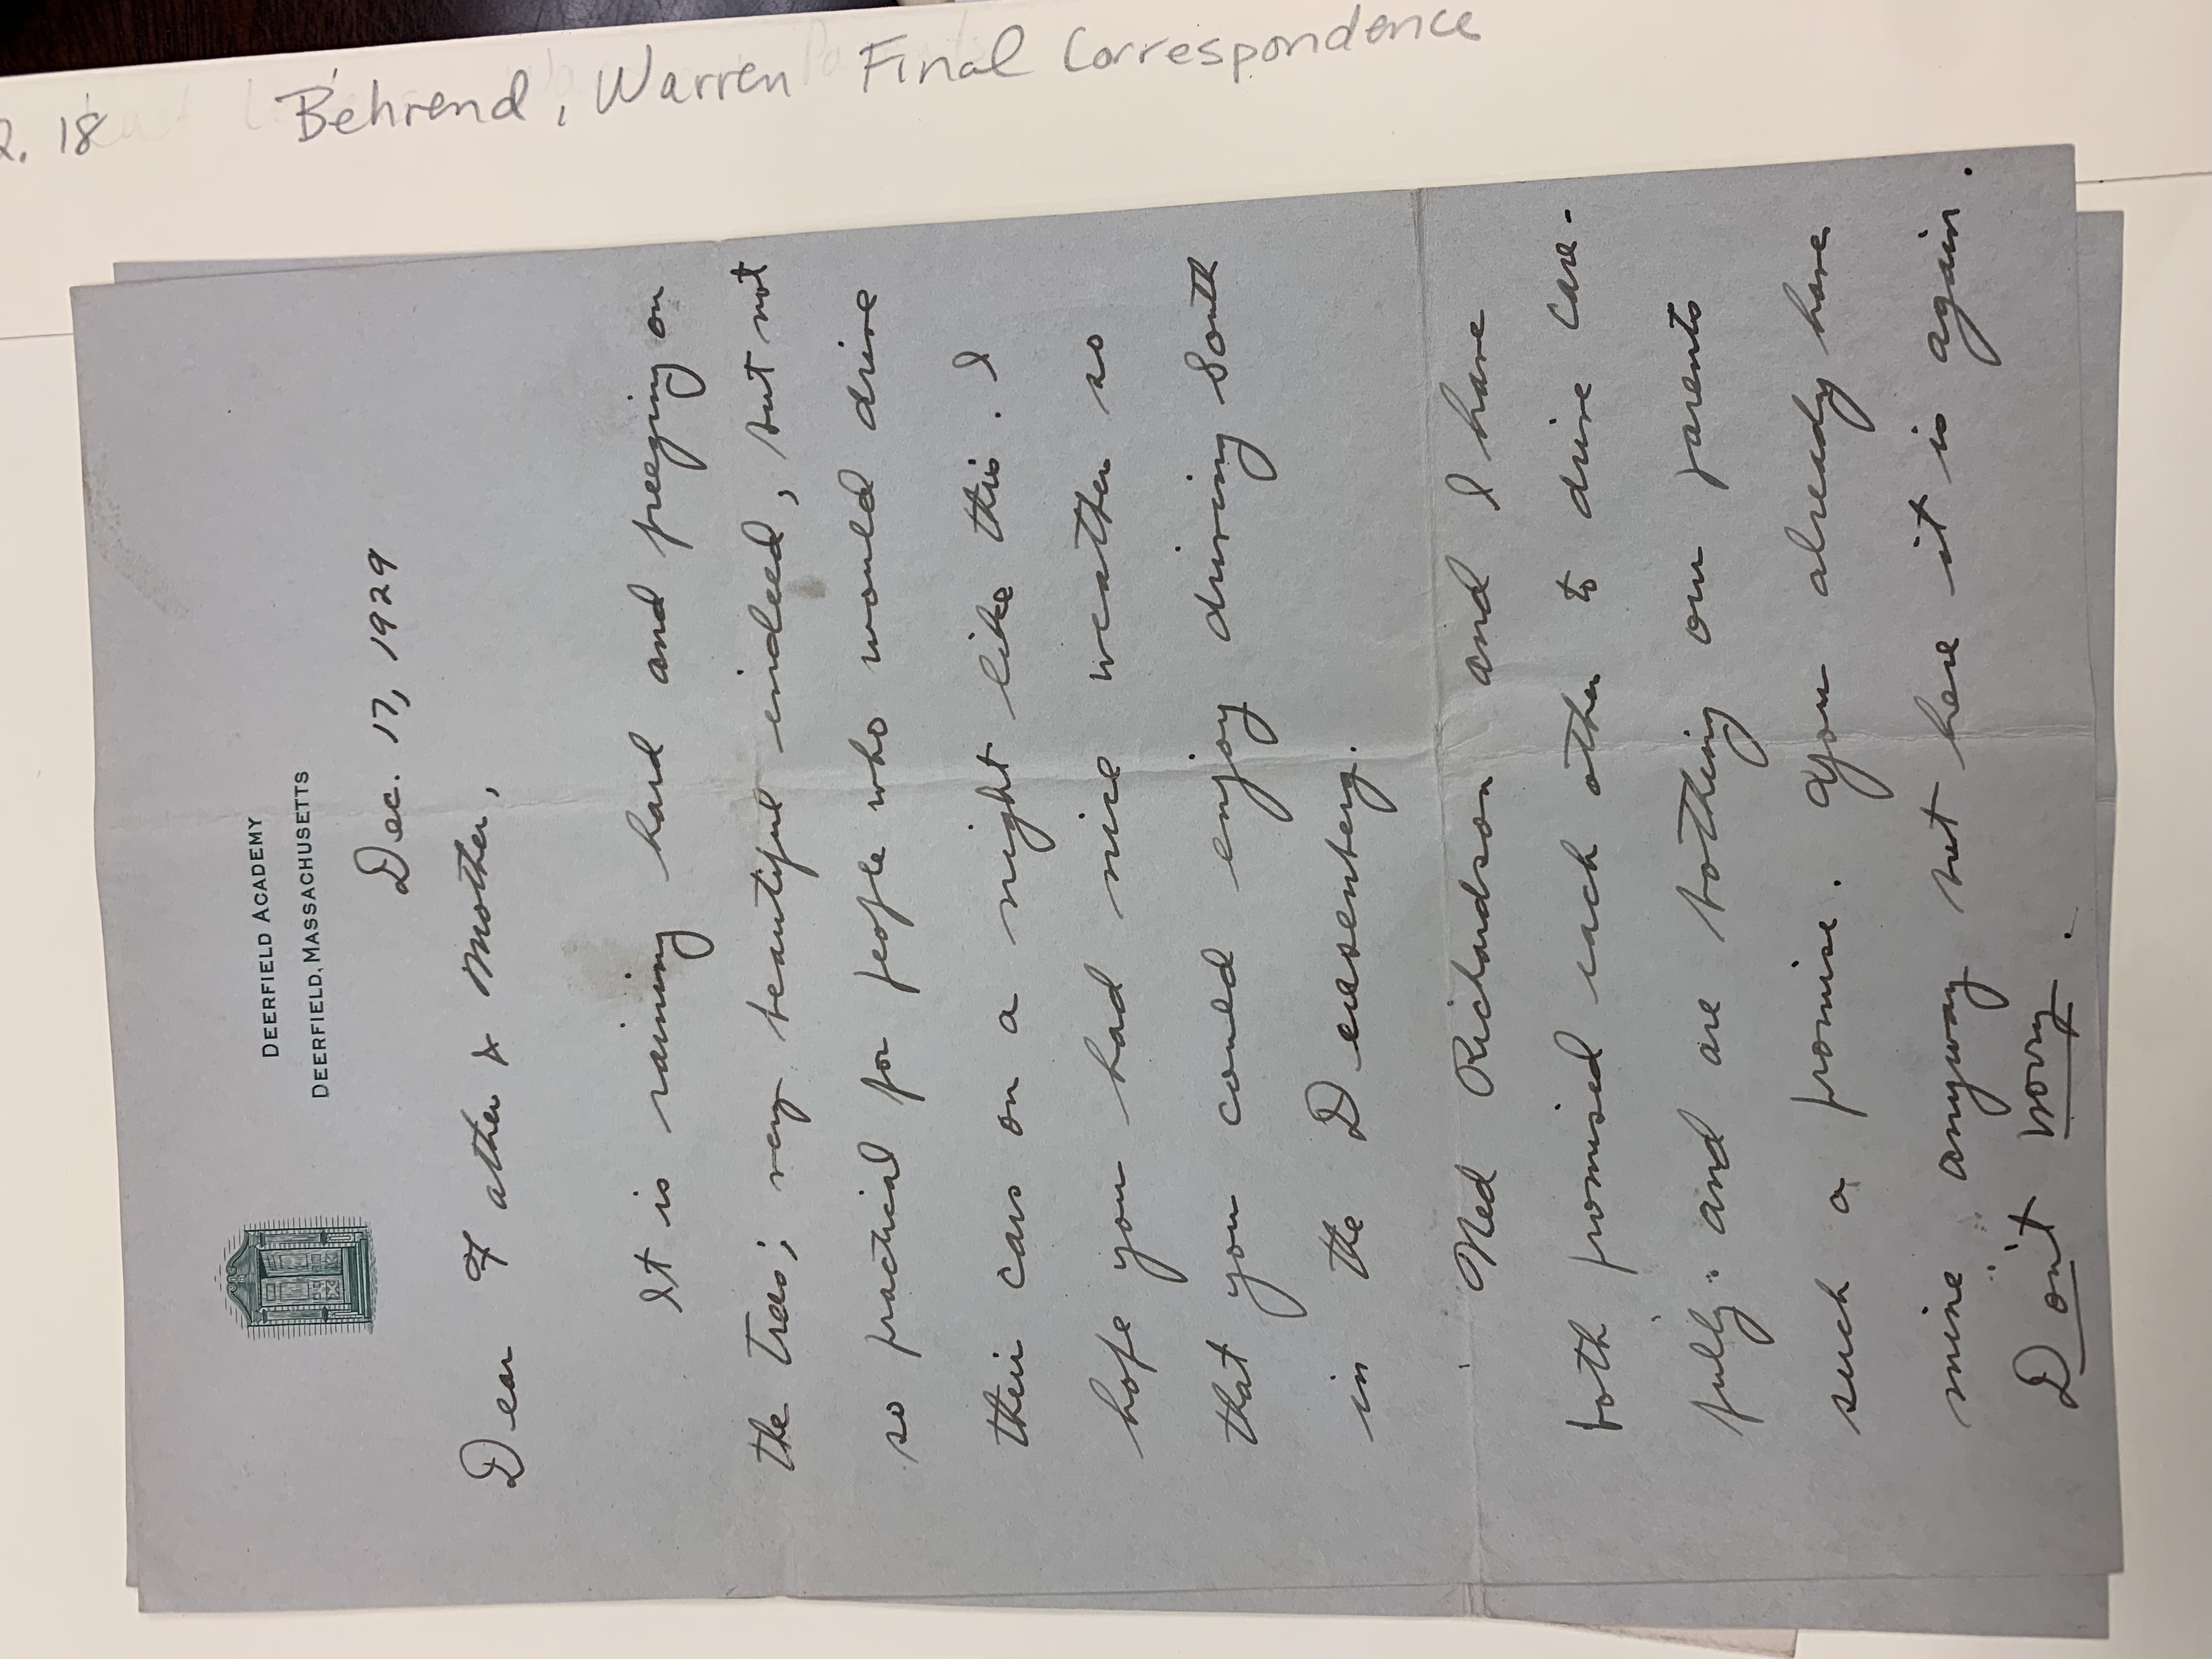 DEERFIELD ACADEMY
DEERFIELD, MASSACHUSETTS
Dec. 17, 1929
Dear Father & Mother,
It is raining hard and freezing on
the trees; very beautiful indeed, but not
so practical for people who would drive
their cars on a night like this. I
hope you had nice weather so
that you could enjoy driving South
in the Deusenberg.
Ned Richardson and I have
both promised each other to drive care-
fully. and are bothing our parents
such a promise. You already have
mine anyway but here it is again.
Don't worry.
2. 18 Behrend, Warren Final Correspondence